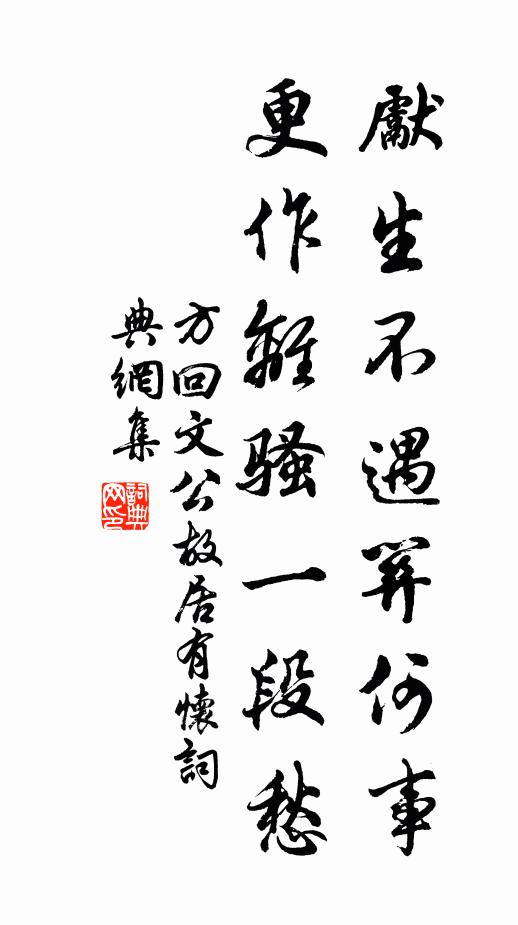 獻生不遇關何事
更作離騷一段愁
方回文公故居有懷詞
典網集
詞典
网印